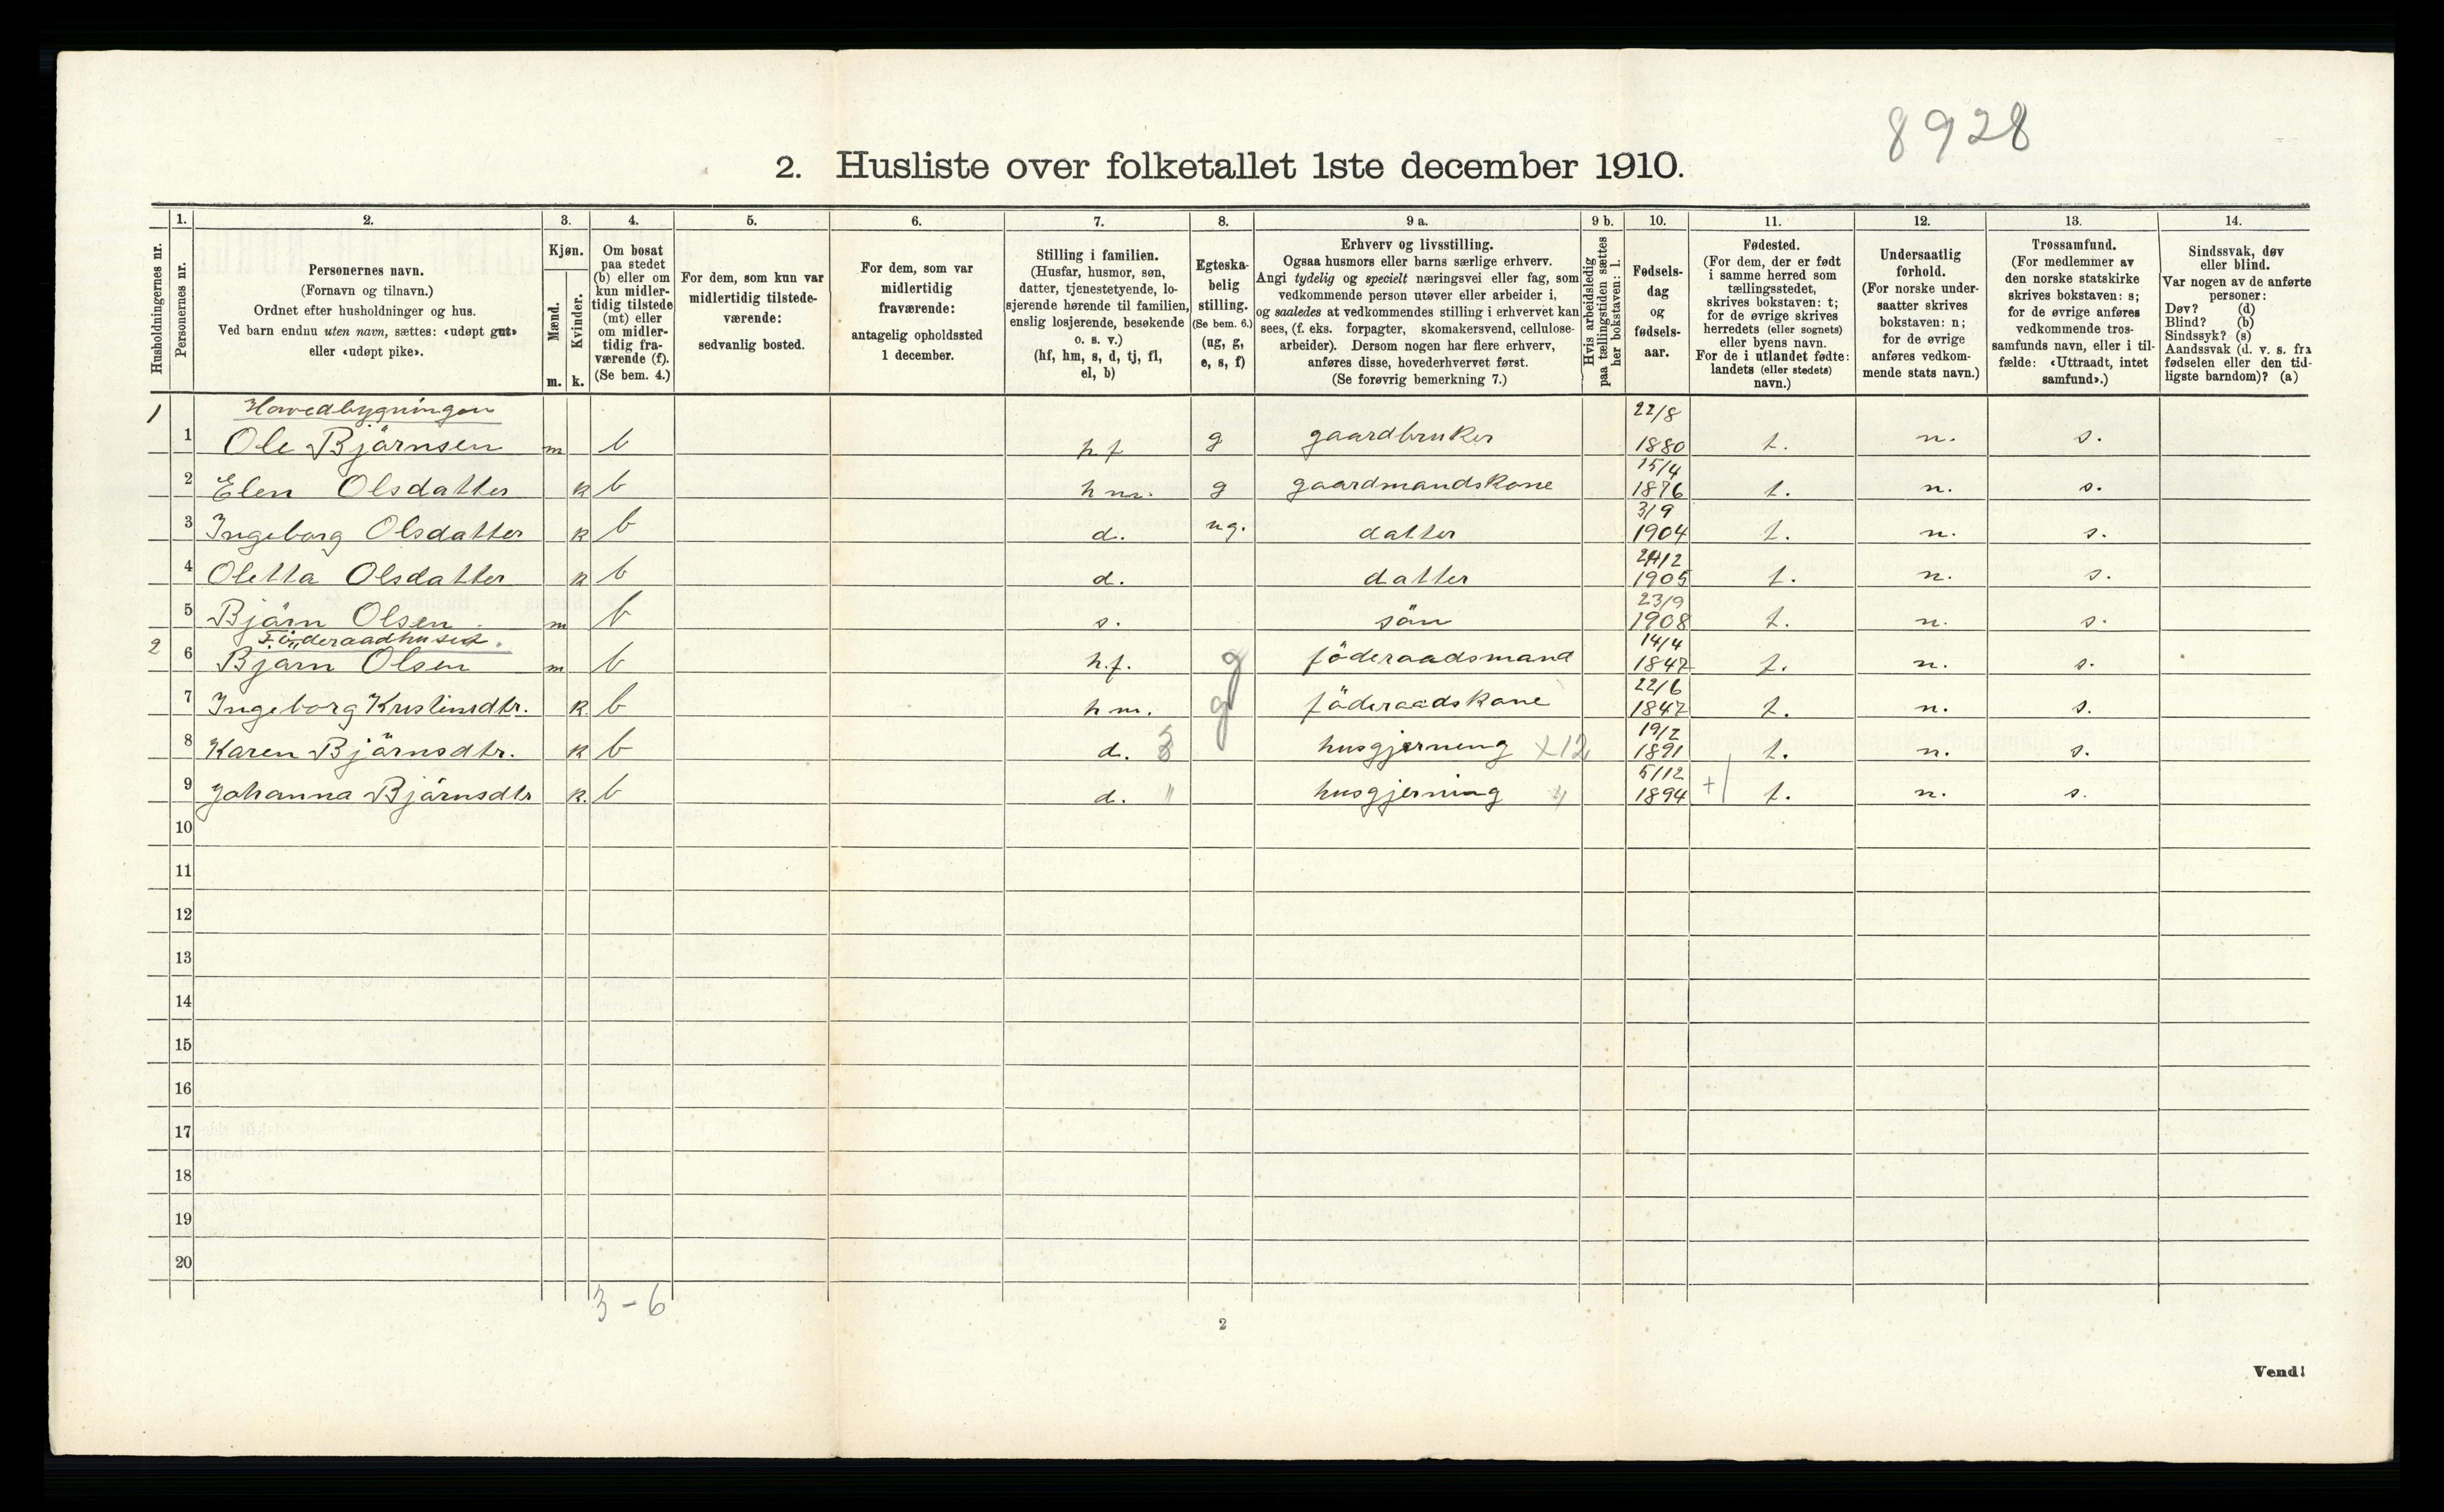 8928
2. Husliste over folketallet 1ste december 1910.
Husholdningernes nr.
1.
Personernes nr.
2.
Personernes navn.
(Fornavn og tilnavn.)
Ordnet efter husholdninger og hus.
Ved barn endnu uten navn, sættes: «udøpt gut»
eller «udøpt pike».
3.
Kjøn.
Mænd.
Kvinder.
m. k.
4.
Om bosat
paa stedet
(b) eller om
kun midler-
tidig tilstede
(mt) eller
om midler-
tidig fra-
værende (f).
(Se bem. 4.)
5.
For dem, som kun var
midlertidig tilstede-
værende:
sedvanlig bosted.
6.
For dem, som var
midlertidig
fraværende:
antagelig opholdssted
1 december.
7.
Stilling i familien.
(Husfar, husmor, søn,
datter, tjenestetyende, lo-
sjerende hørende til familien,
enslig losjerende, besøkende
o. s. v.)
(hf, hm, s, d, tj, fl,
el, b)
8.
Egteska-
belig
stilling.
(Se bem. 6.)
(ug, g,
e, s, f)
9 a.
Erhverv og livsstilling.
Ogsaa husmors eller barns særlige erhverv.
Angi tydelig og specielt næringsvei eller fag, som
vedkommende person utøver eller arbeider i,
og saaledes at vedkommendes stilling i erhvervet kan
sees, (f. eks. forpagter, skomakersvend, cellulose-
arbeider). Dersom nogen har flere erhverv,
anføres disse, hovederhvervet først.
(Se forøvrig bemerkning 7.)
9 b.
Hvis arbeidsledig
paa tællingstiden sættes
her bokstaven: l.
10.
Fødsels-
dag
og
fødsels-
aar.
11.
Fødested.
(For dem, der er født
i samme herred som
tællingsstedet,
skrives bokstaven: t;
for de øvrige skrives
herredets (eller sognets)
eller byens navn.
For de i utlandet fødte:
landets (eller stedets)
navn.)
12.
Undersaatlig
forhold.
(For norske under-
saatter skrives
bokstaven: n;
for de øvrige
anføres vedkom-
mende stats navn.)
13.
Trossamfund.
(For medlemmer av
den norske statskirke
skrives bokstaven: s;
for de øvrige anføres
vedkommende tros-
samfunds navn, eller i til-
fælde: «Uttraadt, intet
samfund».)
14.
Sindssvak, døv
eller blind.
Var nogen av de anførte
personer:
Døv? (d)
Blind? (b)
Sindssyk? (s)
Aandssvak (d. v. s. fra
fødselen eller den tid-
ligste barndom)? (a)
1 Hovedbygningen
1 Ole Björnsen m b hf g gaardbruker 22/8 1880 t. n. s.
2 Elen Olsdatter k b hm. g gaardmandskone 15/4 1876 t. n. s.
3 Ingeborg Olsdatter k b d. ug. datter 3/9 1904 t. n. s.
4 Oletta Olsdatter k b d. datter 1905 t. n. s.
5 Björn Olsen m b s. sön 23/9 1908 t. n. s.
2 Föderaadhuset.
6 Björn Olsen m b h.f. g föderaadsmand 14/4 1847 t. n. s.
7 Ingeborg Kristinsdtr. k. b hm. g föderaadskone 22/6 1847 t. n. s.
8 Karen Björnsdtr. k b d. husgjerning x12 19/2 1891 t. n. s.
9 Johanna Björnsdtr k. b d. " husgjerning 5/12 1894 + t. n. s.
10
11
12
13
14
15
16
17
18
19
20
3-6
2
Vend!